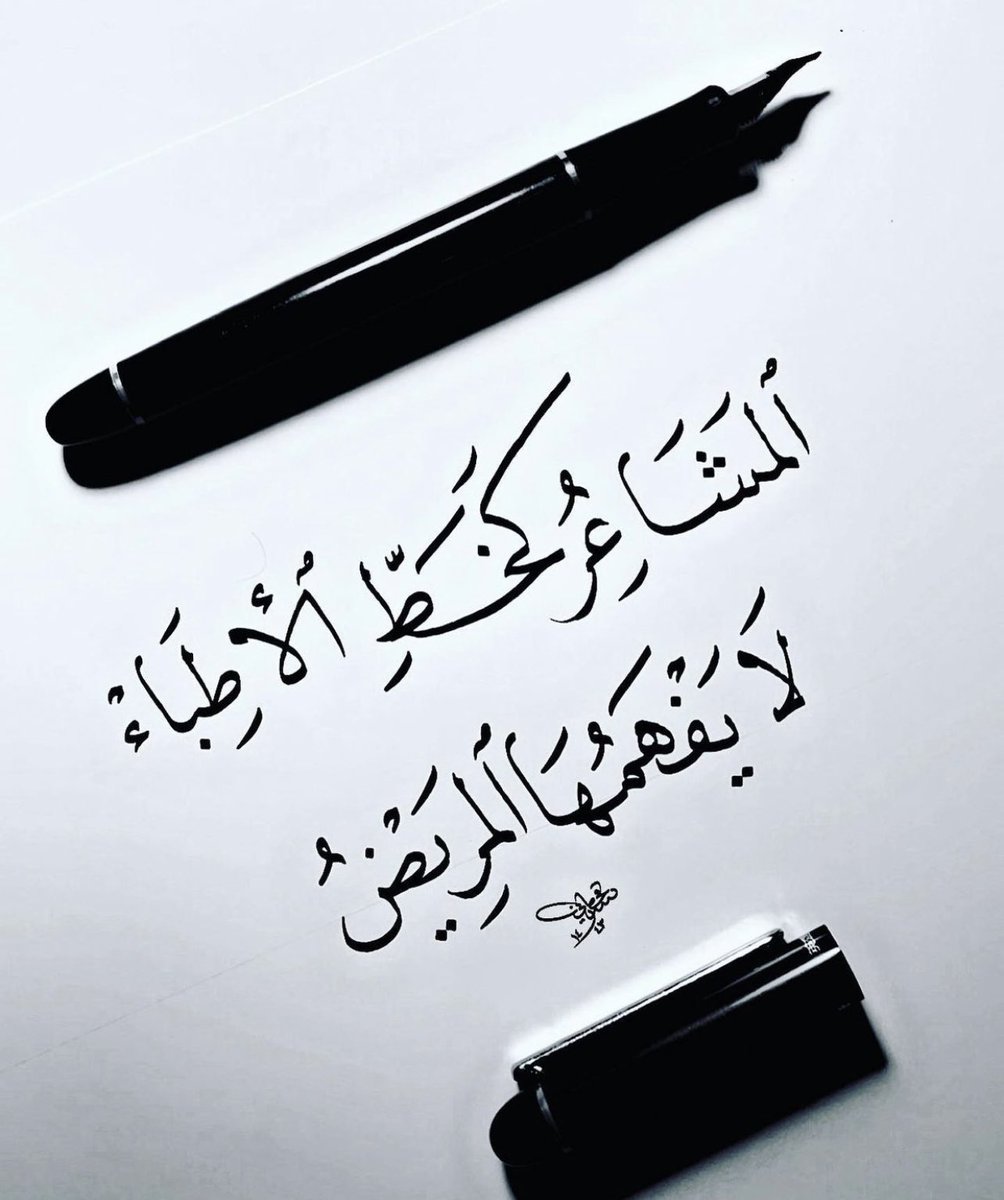 ألمَشَاعِرُ كَخَطِّ ألأطِبَاءْ
لَا يَفْهَمُهَا ألمِريَضْ